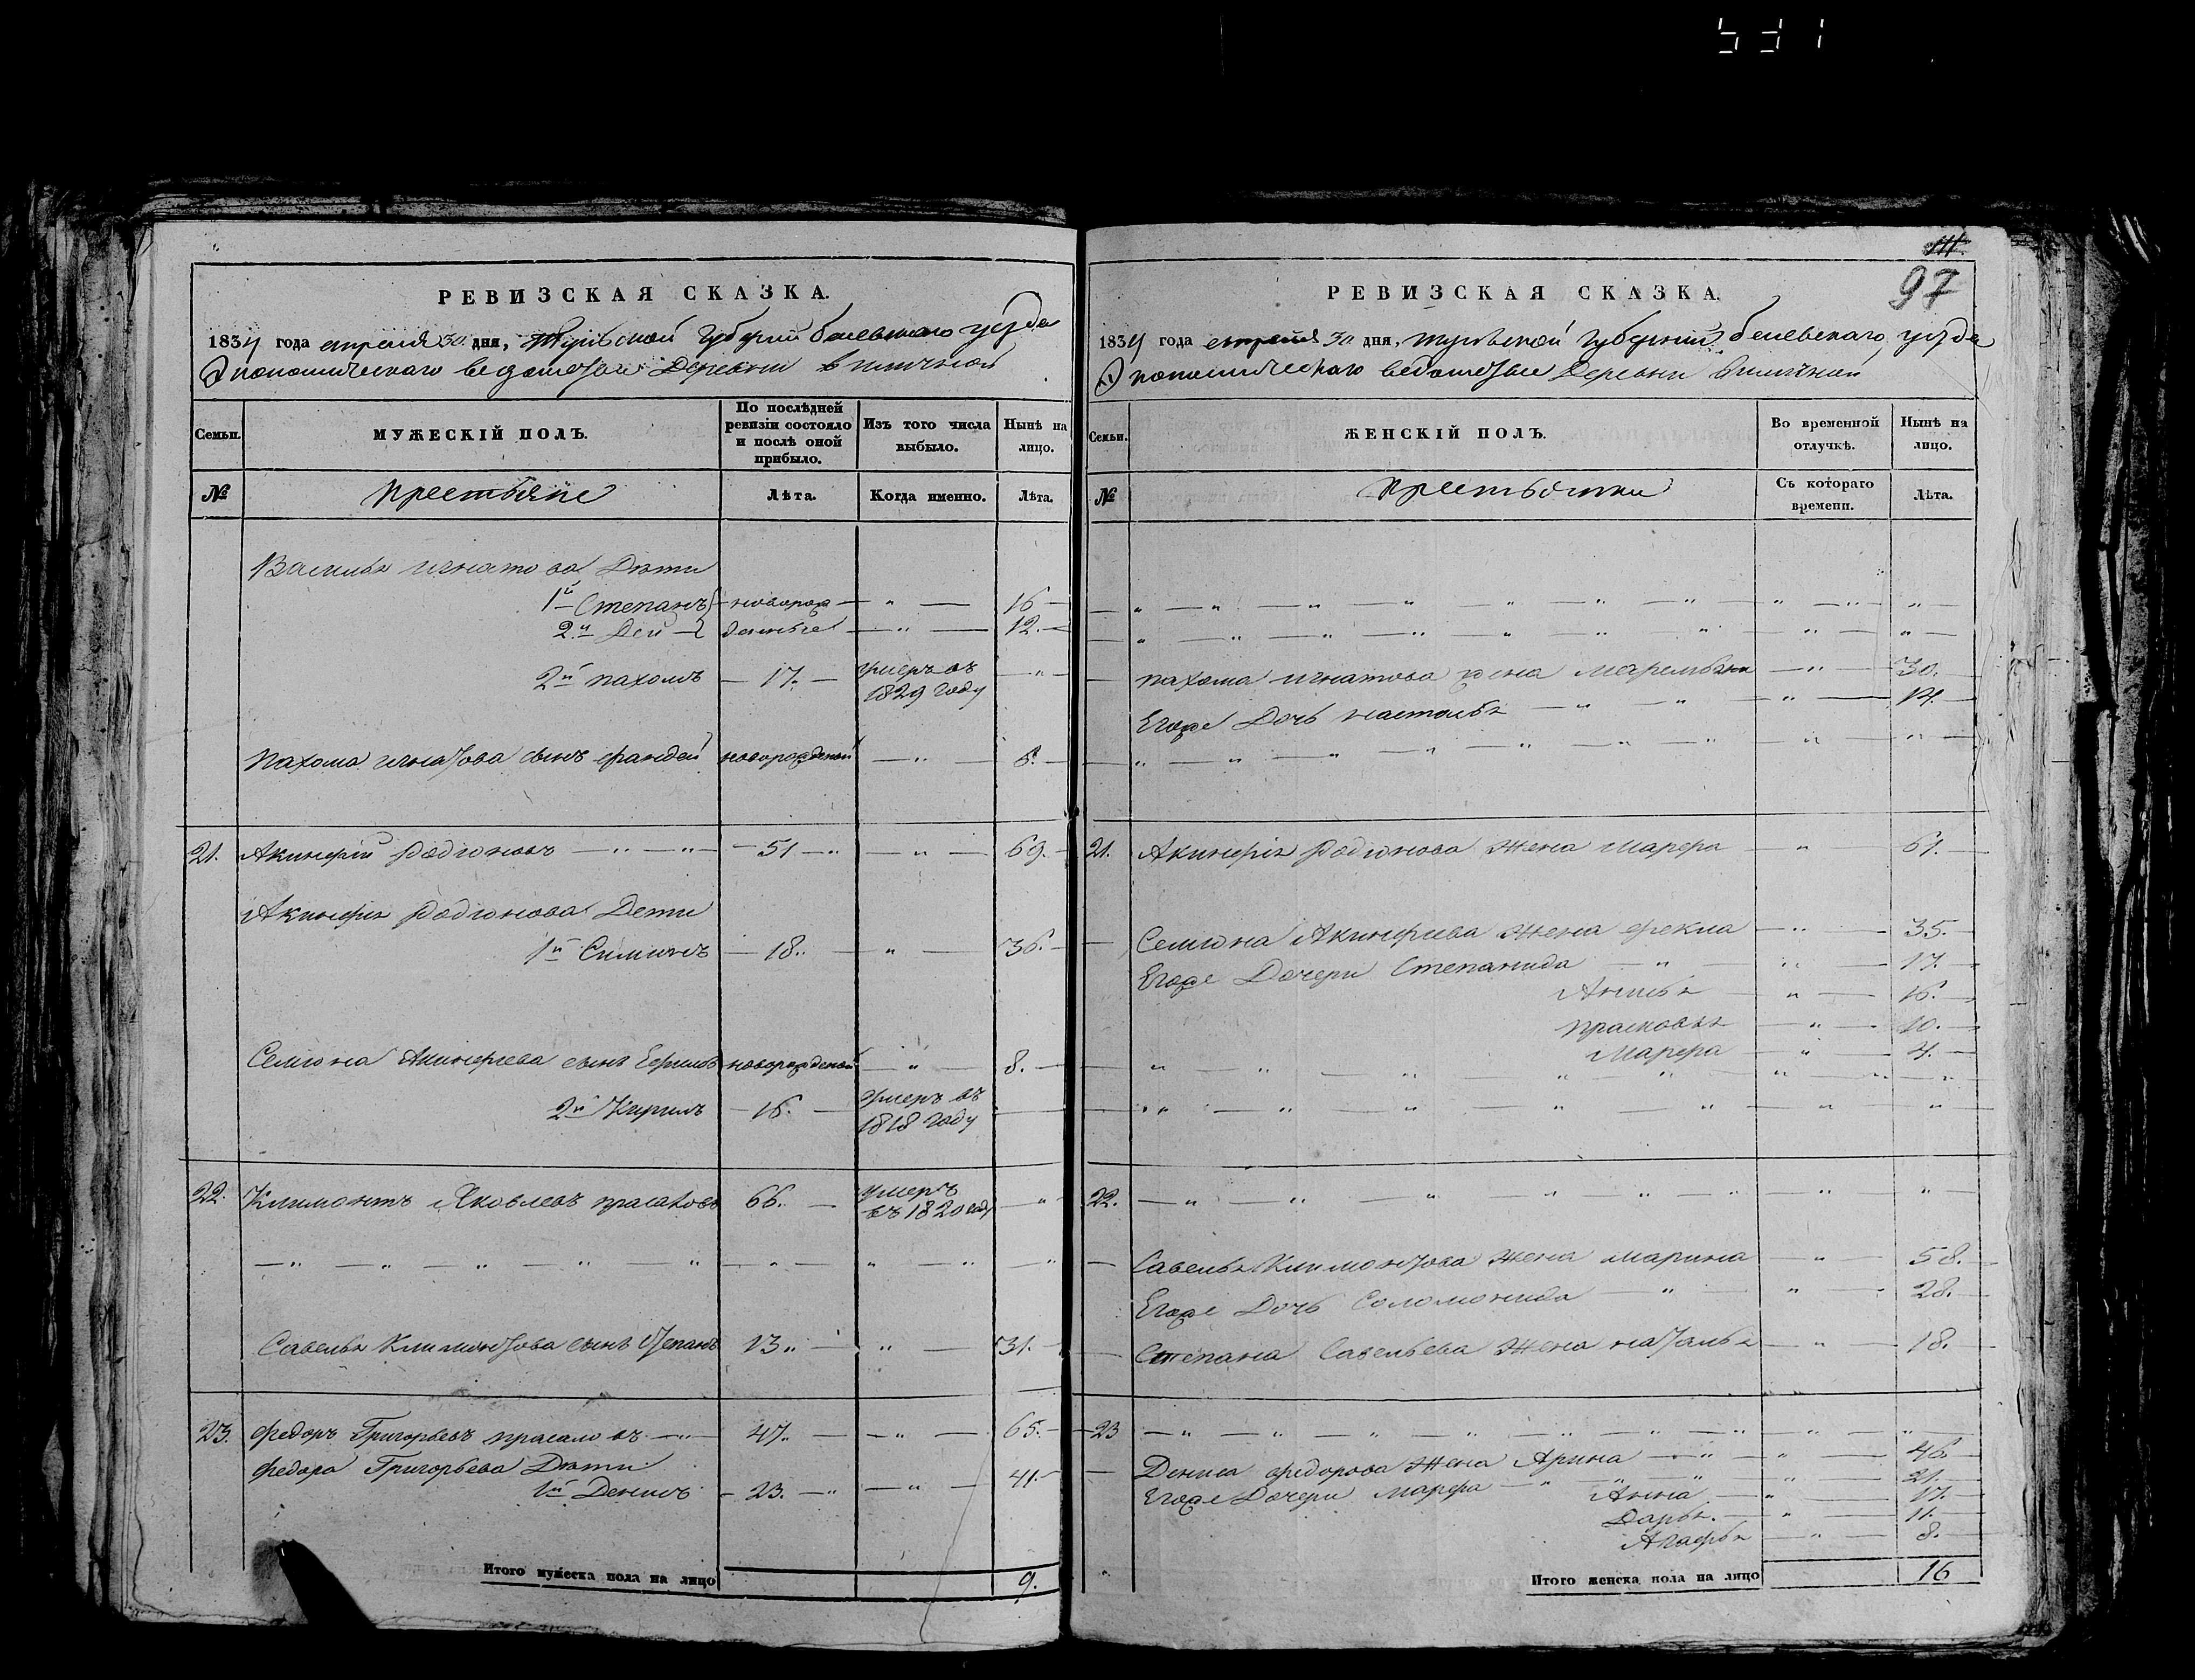 531
РЕВИЗСКАЯ СКАЗКА.
1834 года апреля 30 дня, Тульской Губернии белевскаго уезда
Экономическаго ведомства Деревни
Семьи.
МУЖЕСКІЙ ПОЛЪ.
По послѣдней ревизіи состояло и послѣ оной прибыло.
Изъ того числа выбыло.
Нынѣ на лицо.
№
крестьяне
Лѣта.
Когда именно.
Лѣта.
Василья игнатова Дѣти
1й Степанъ новорож „ 16
2й денные „ 12.
2й пахомъ 17. умеръ въ 1829 году „
пахома игнатова сынъ новорожденой „
21. Акинфій Родіоновъ „ „ 51 „ „ 69.
Акинфія Родіонова Дети
1й Симионъ 18. „ 36.
Семіона Акинфиева сынъ Ефимъ новорожденой „ 8.
2й Кирилъ 16. умеръ въ 1818 году
22. Климонтъ Яковлевъ 66. умеръ въ 1820 году „
„ „ „ „ „ „ „ „ „
Савелья Климонтова сынъ Степанъ 13 „ „ 31.
23. Федоръ Григорьевъ 47. „ 65.
Федора Григорьева Дѣти
1й Денисъ 23. „ „ 41.
Итого мужеска пола на лицо 9.
111.
97
РЕВИЗСКАЯ СКАЗКА.
1834 года апреля 30 дня, тульской Губернии белевскаго уезда
Экономическаго ведомства Деревни
Семьи.
ЖЕНСКІЙ ПОЛЪ.
Во временной отлучкѣ.
Нынѣ на лицо.
№
крестьянки
Съ котораго времени.
Лѣта.
„ „ „ „ „ „ „ „ „ „
„ „ „ „ „ „ „ „ „
пахома игнатова жена „ 30.
Егоже Дочь настасья „ „ „ 14.
„ „ „ „ „ „ „ „ „
21. Акинфія Родіонова жена марфа „ 61.
Семіона Акинфиева жена фекла „ 35.
Егоже Дочери Степанида „ „ 17.
Анисья „ 16.
прасковья „ 10.
Марфа „ 4.
„ „ „ „ „ „ „ „
„ „ „ „ „ „ „
22. „ „ „ „ „ „ „ „
Савелья Климонтова жена марина „ 58.
Егоже Дочь Соломонида „ „ 28.
Степана Савельева жена наталья „ 18.
23 „ „ „ „ „ „ „ „ „
Дениса федорова жена Арина „ „ 46
Егоже Дочери марфа „ „ „ „ 21.
Анна „ 17.
Дарья. „ 11.
Агафья „ 8.
Итого женска пола на лицо 16